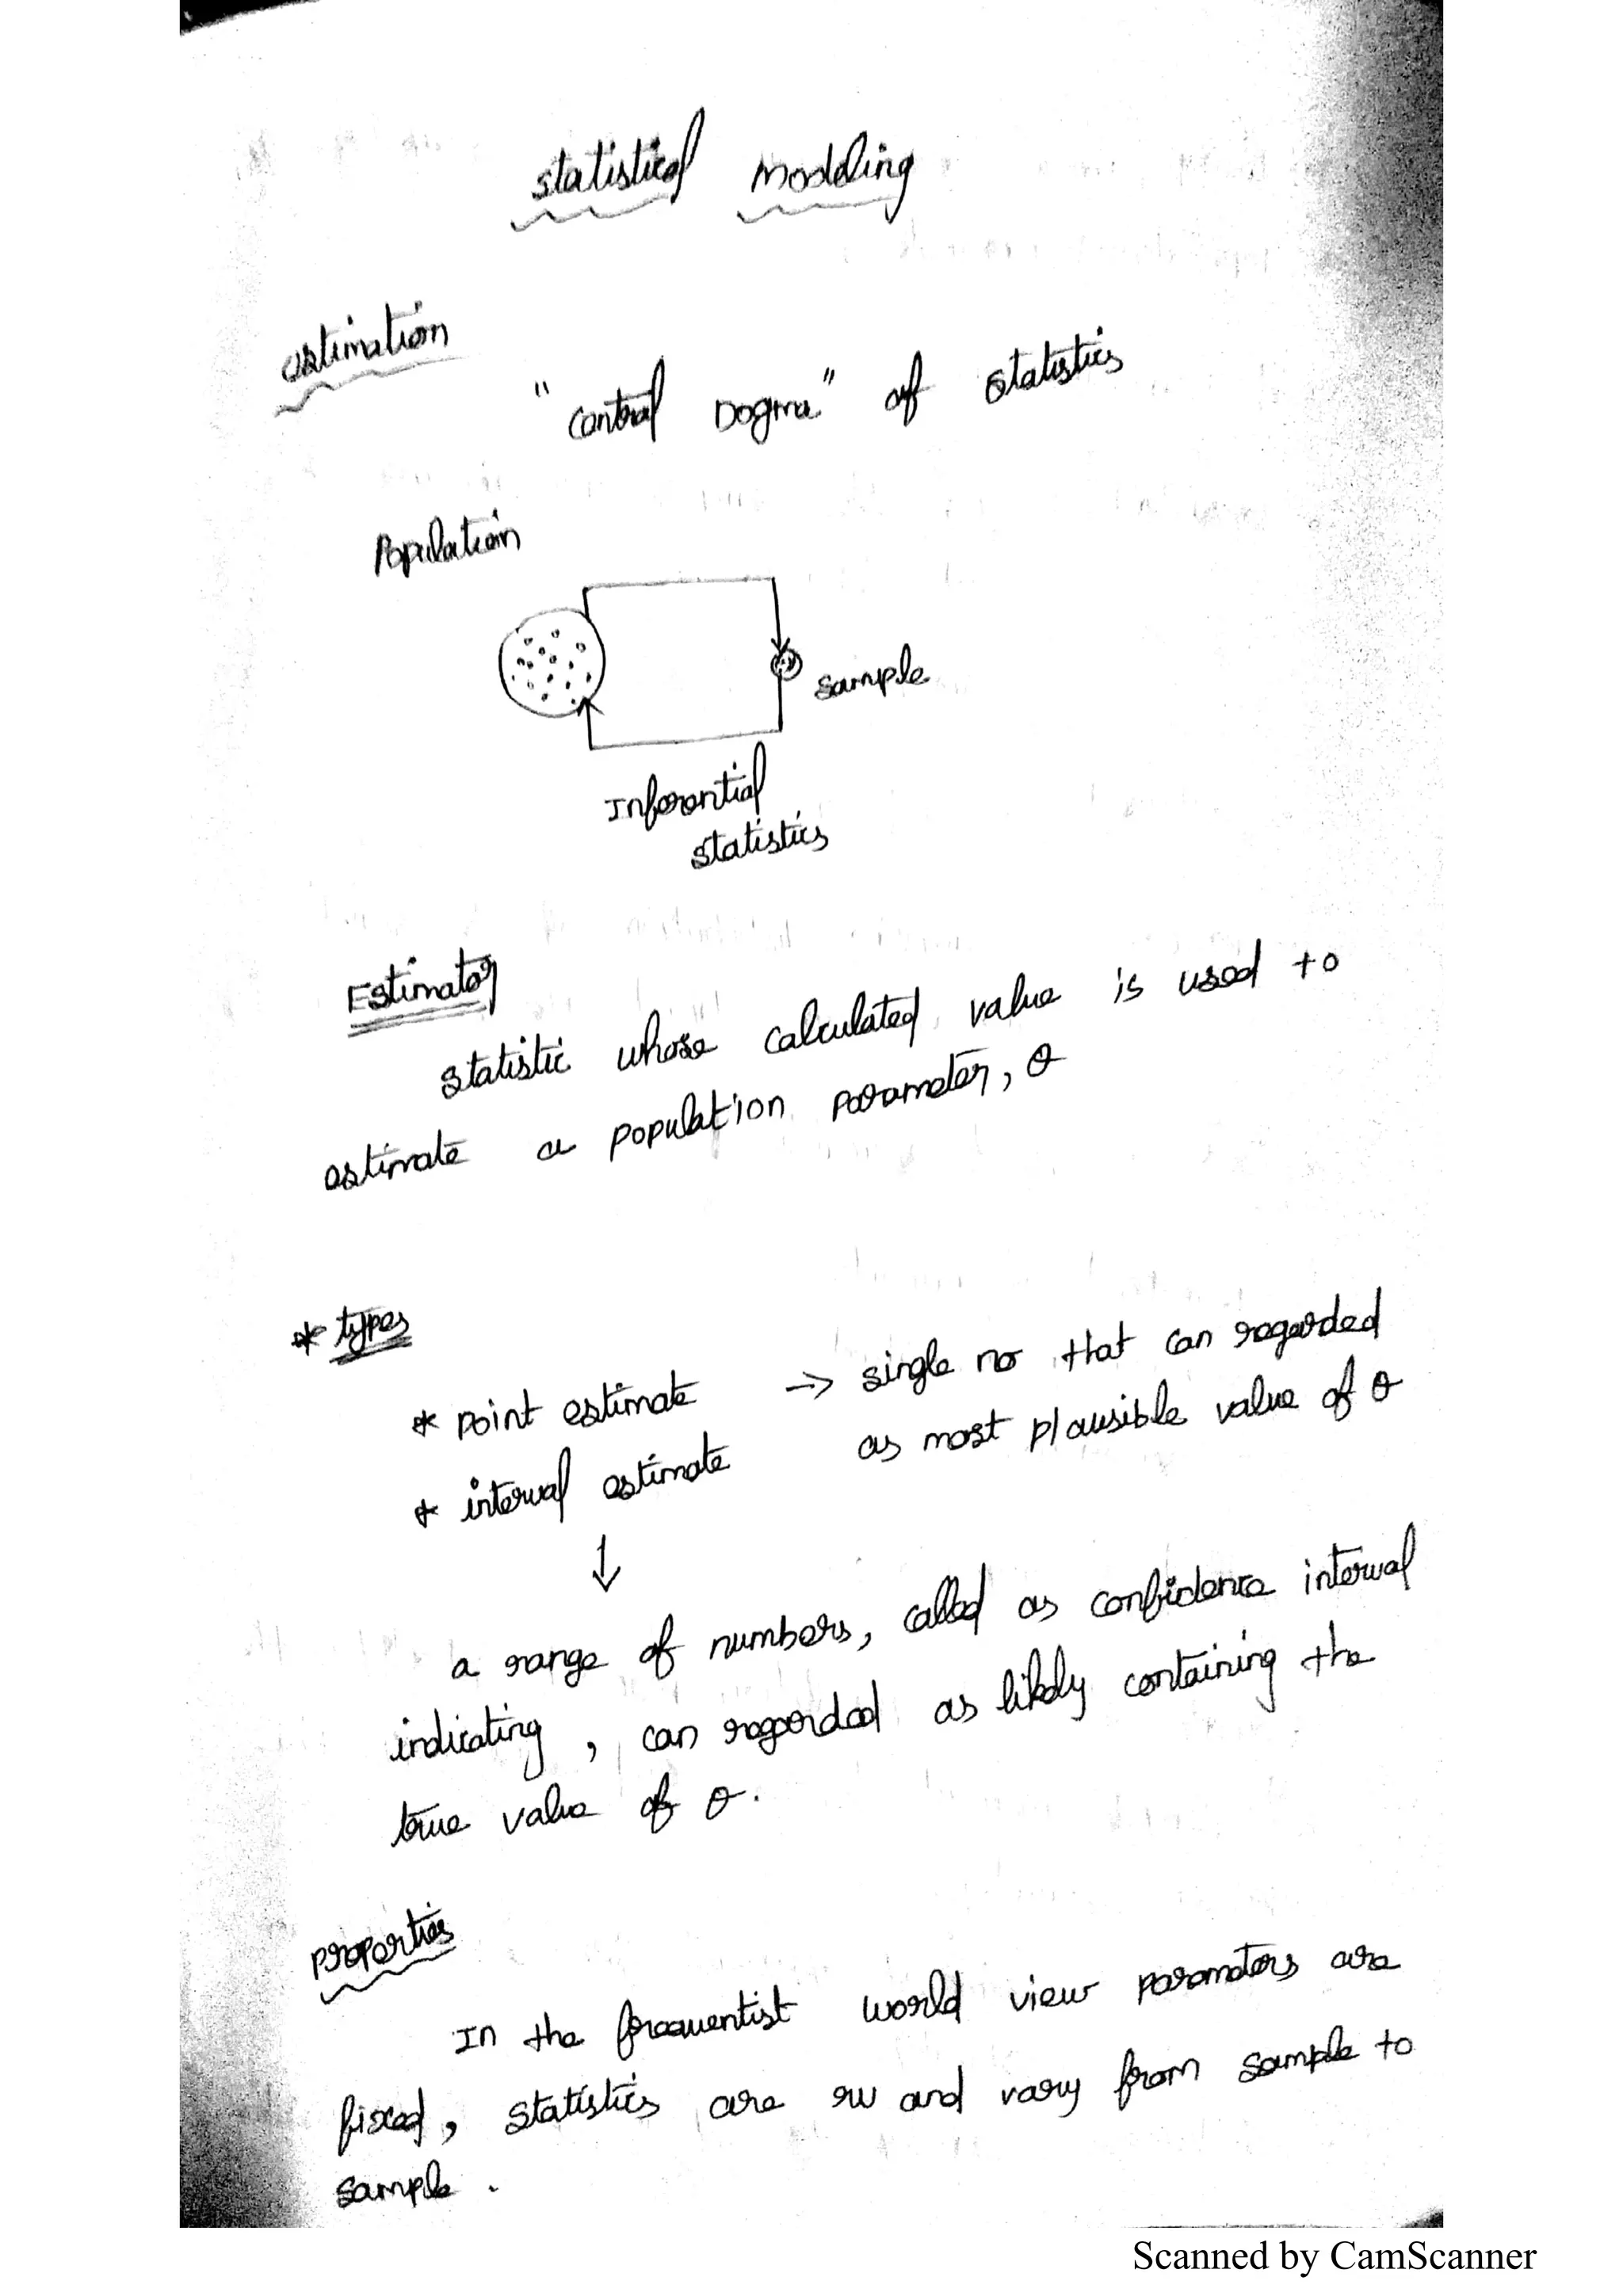 statistical modeling
estimation
"central Dogma" of statistics
Population
sample
Inferential
statistics
Estimator
statistic whose calculated value is used to
estimate a population parameter, θ
* types
* point estimate → single no that can regarded
as most plausible value of θ
* interval estimate
↓
a range of numbers, called as confidence interval
indicating, can regarded as likely containing the
true value of θ.
properties
In the frequentist world view parameters are
fixed, statistics are rv and vary from sample to
sample.
Scanned by CamScanner